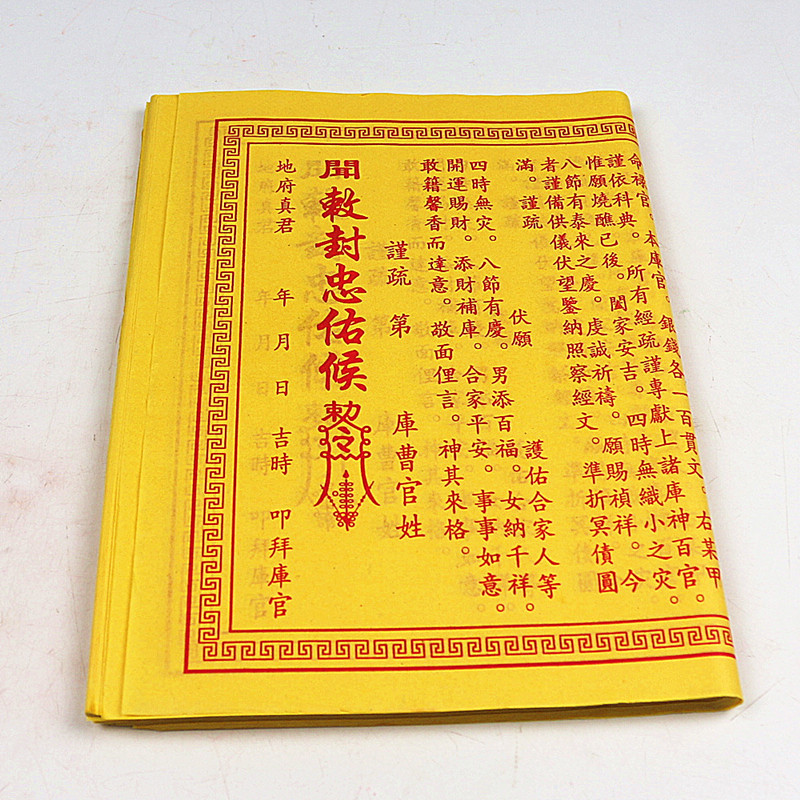 命祿官。本庫官。銀錢各一百貫文。右某甲
謹依科典。所有經疏謹專献上諸庫神百官。
惟願燒醮已後。闔家安吉。四時無纎小之灾。
八節有泰來之慶。虔誠祈禱。願賜禎祥。今
者謹備供儀伏望鑒納照察經文。準折冥債圓
滿。謹疏
伏願　護佑合家人等
四時無灾。八節有慶。男添百福。女納千祥。
開運賜財。添財補庫。合家平安。事事如意。
敢籍馨香而達意。敬面俚言。神其來格。
謹疏　第　庫曹官姓
聞敕封忠佑候敕令
地府真君　年　月　日　吉時　叩拜庫官